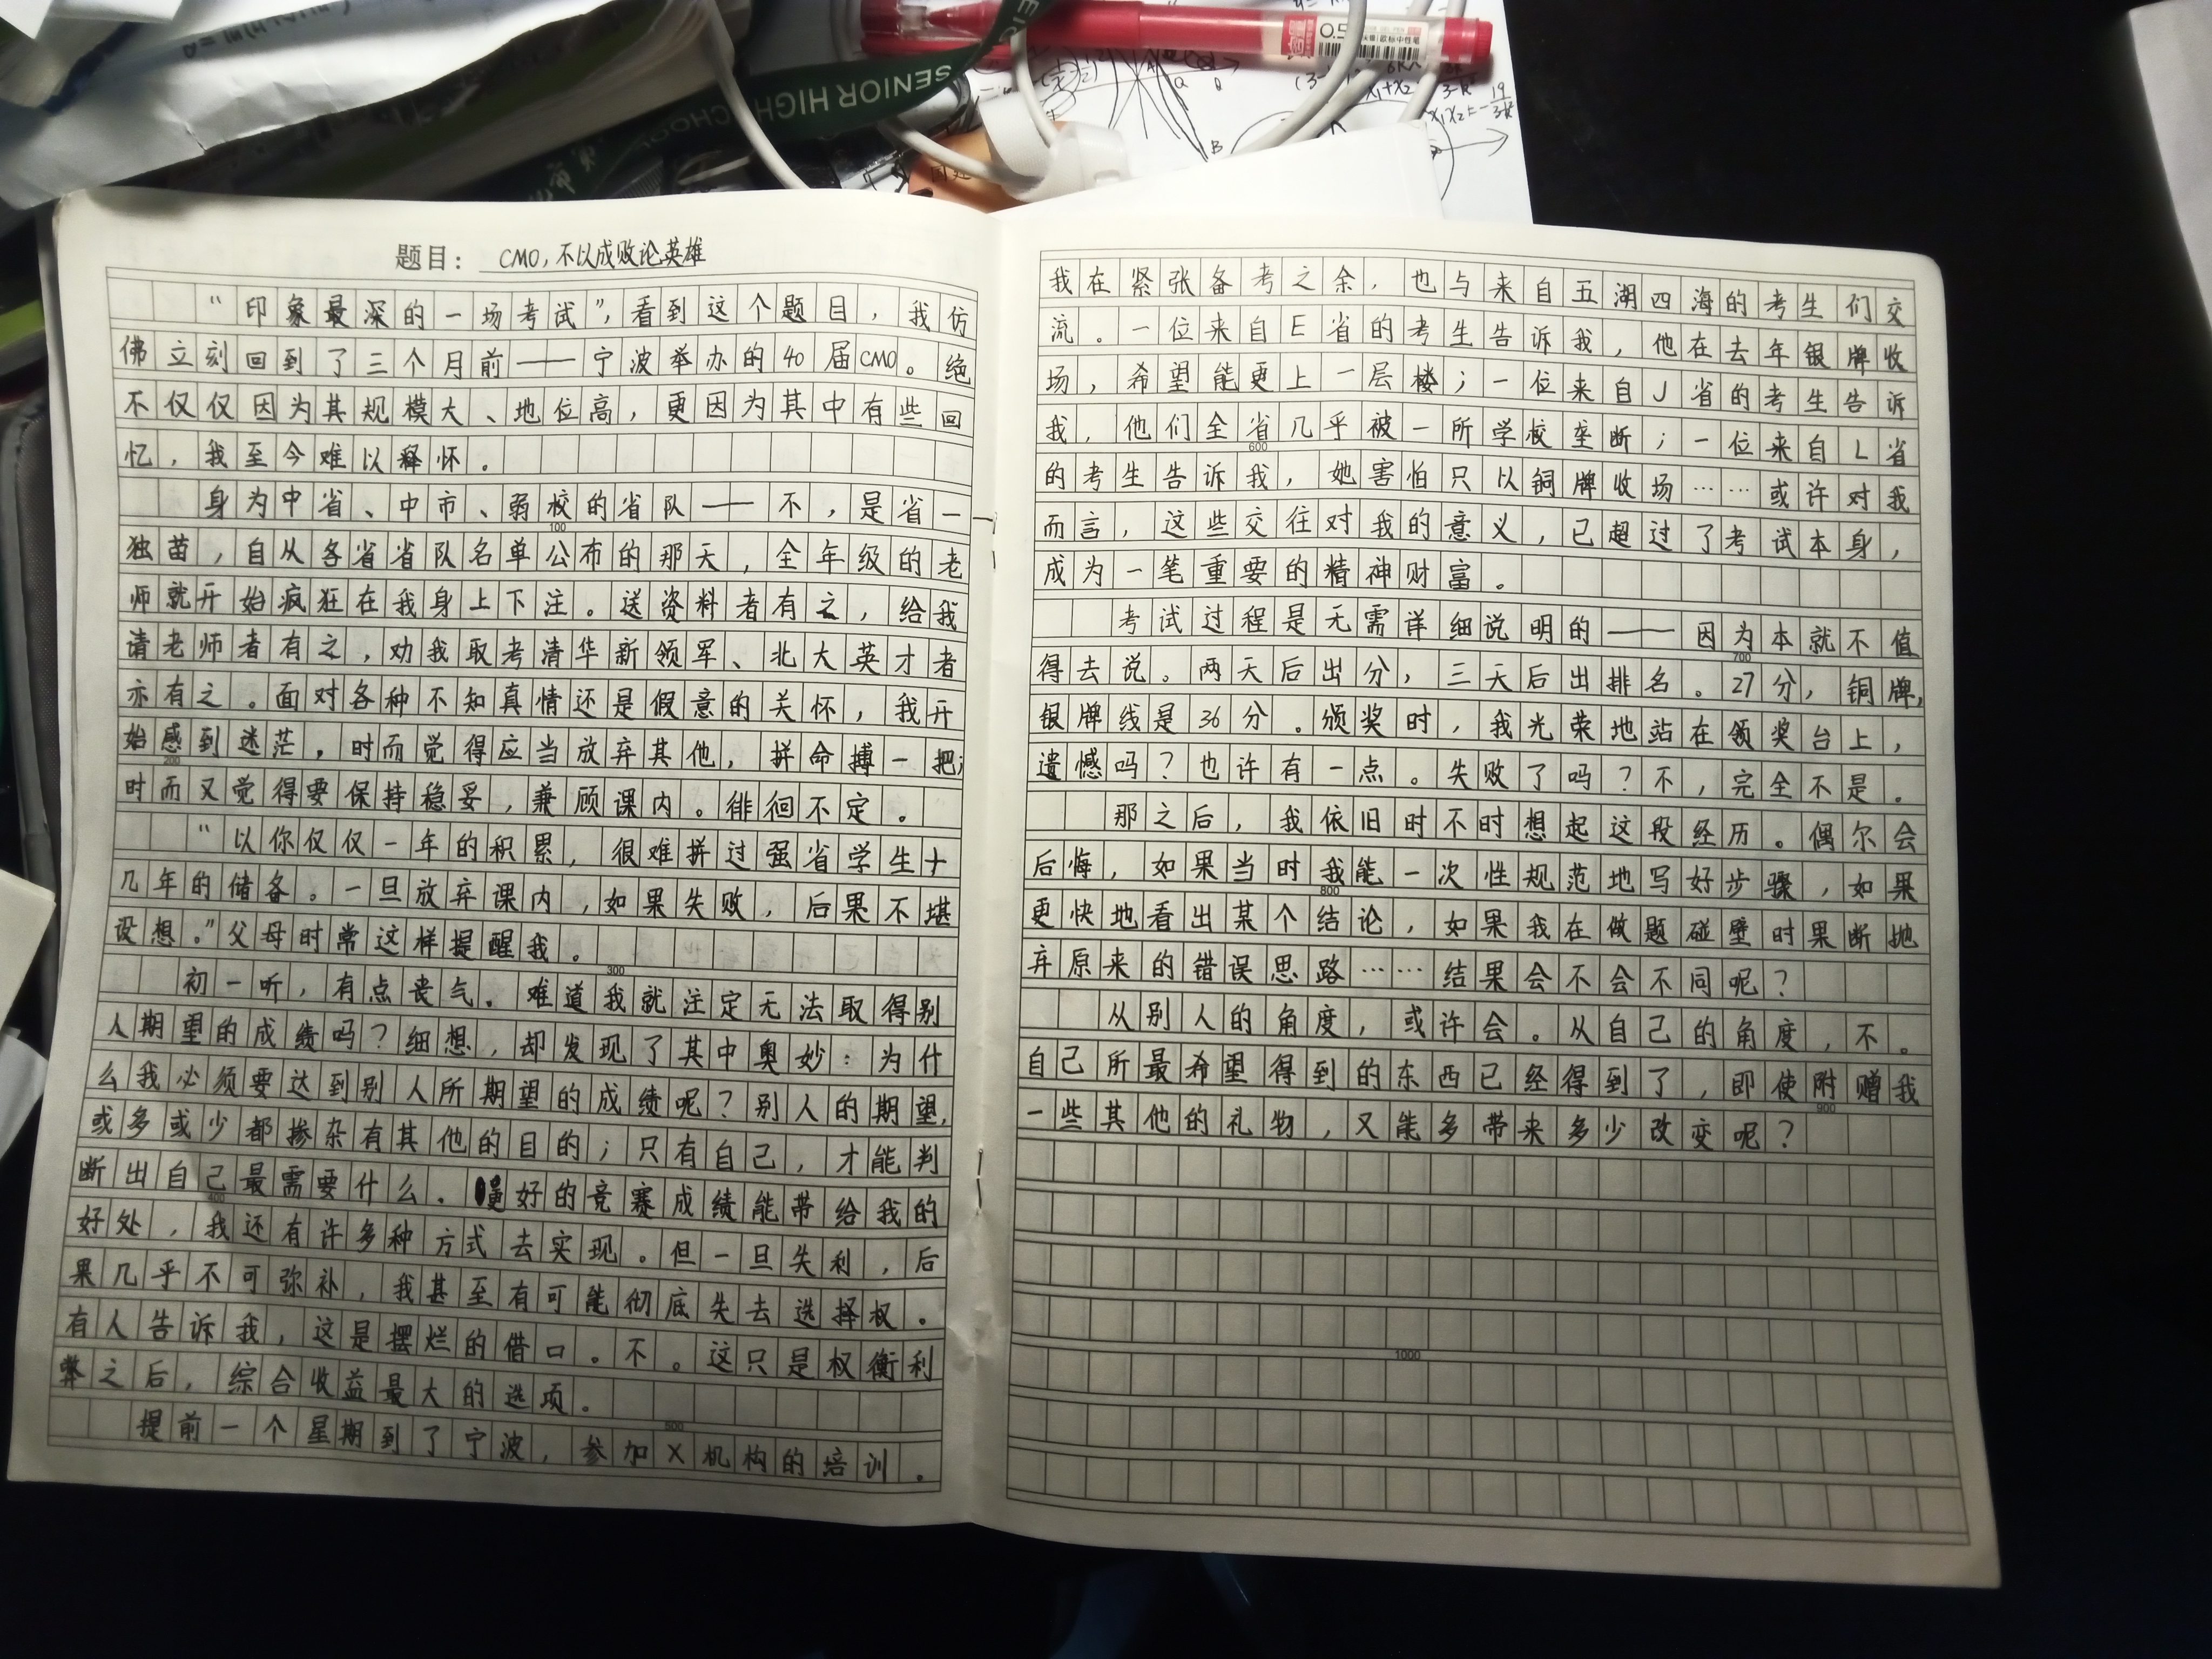 SENIOR HIGH SCHOO
0.5
欧标中性笔
B
题目：CMO,不以成败论英雄
“印象最深的一场考试”,看到这个题目，我仿
佛立刻回到了三个月前——宁波举办的40届CMO。绝
不仅仅因为其规模大、地位高，更因为其中有些回
忆，我至今难以释怀。
身为中省、中市、弱校的省队——不，是省一
100
独苗，自从各省省队名单公布的那天，全年级的老
师就开始疯狂在我身上下注。送资料者有之，给我
请老师者有之，劝我取考清华新领军、北大英才者
亦有之。面对各种不知真情还是假意的关怀，我开
始感到迷茫，时而觉得应当放弃其他，拼命搏一把；
200
时而又觉得要保持稳妥，兼顾课内。徘徊不定。
“以你仅仅一年的积累，很难拼过强省学生十
几年的储备。一旦放弃课内，如果失败，后果不堪
设想。”父母时常这样提醒我。
300
初一听，有点丧气。难道我就注定无法取得别
人期望的成绩吗？细想，却发现了其中奥妙：为什
么我必须要达到别人所期望的成绩呢？别人的期望，
或多或少都掺杂有其他的目的；只有自己，才能判
断出自己最需要什么。好的竞赛成绩能带给我的
400
好处，我还有许多种方式去实现。但一旦失利，后
果几乎不可弥补，我甚至有可能彻底失去选择权。
有人告诉我，这是摆烂的借口。不。这只是权衡利
弊之后，综合收益最大的选项。
500
提前一个星期到了宁波，参加X机构的培训。
我在紧张备考之余，也与来自五湖四海的考生们交
流。一位来自E省的考生告诉我，他在去年银牌收
场，希望能更上一层楼；一位来自J省的考生告诉
我，他们全省几乎被一所学校垄断；一位来自L省
600
的考生告诉我，她害怕只以铜牌收场……或许对我
而言，这些交往对我的意义，已超过了考试本身，
成为一笔重要的精神财富。
考试过程是无需详细说明的——因为本就不值
700
得去说。两天后出分，三天后出排名。27分，铜牌，
银牌线是36分。颁奖时，我光荣地站在领奖台上，
遗憾吗？也许有一点。失败了吗？不，完全不是。
那之后，我依旧时不时想起这段经历。偶尔会
后悔，如果当时我能一次性规范地写好步骤，如果
800
更快地看出某个结论，如果我在做题碰壁时果断抛
弃原来的错误思路……结果会不会不同呢？
从别人的角度，或许会。从自己的角度，不。
自己所最希望得到的东西已经得到了，即使附赠我
900
一些其他的礼物，又能多带来多少改变呢？
1000